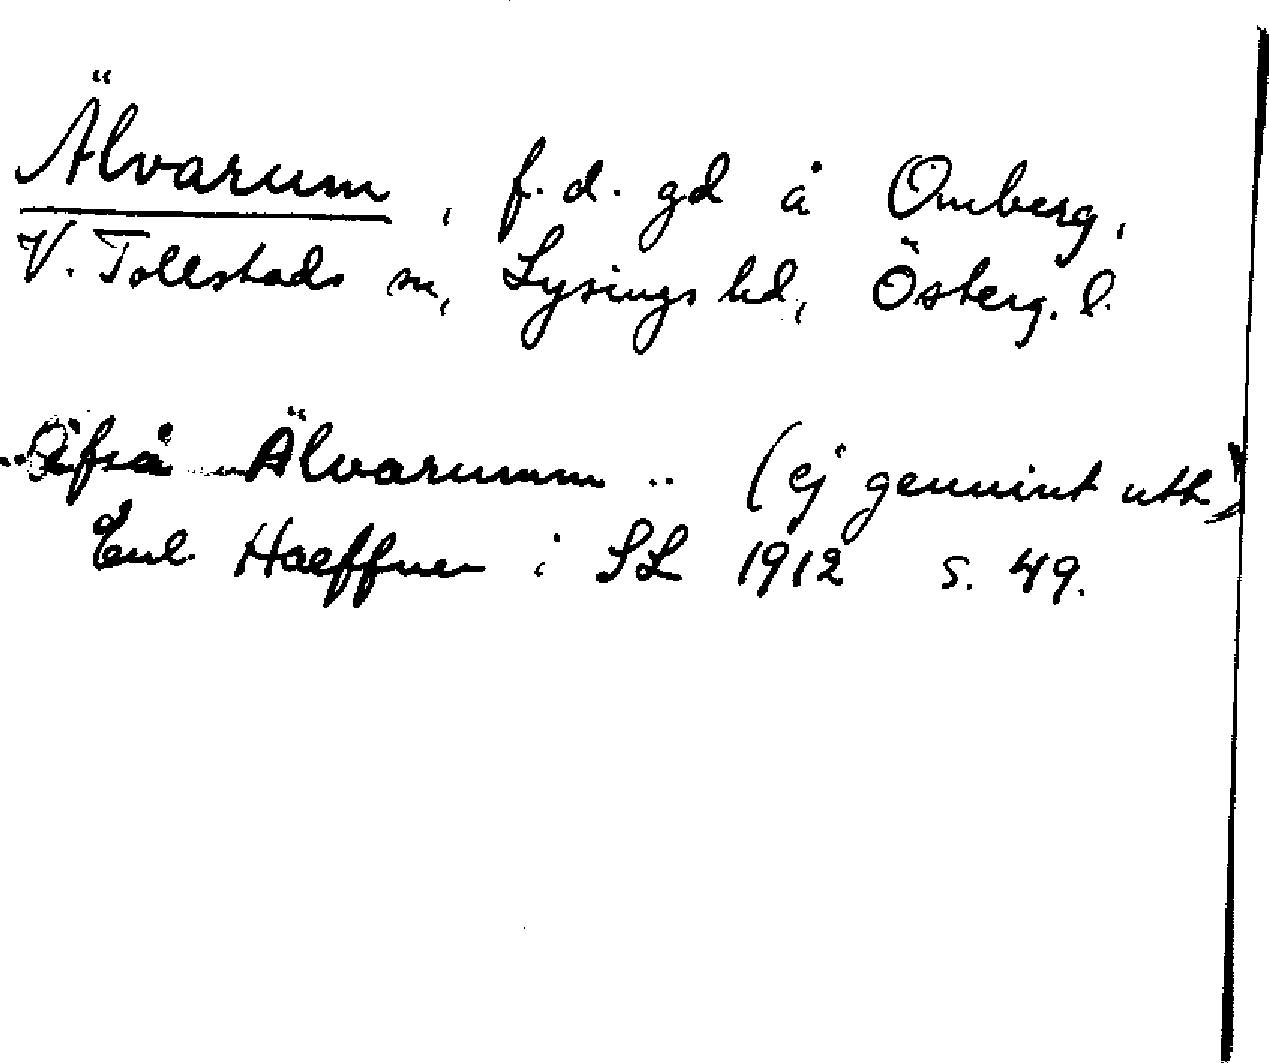 Älvarum, f.d. gd å Omberg,
V. Tollstads sn, Lysings hd, Österg. l.
Älvarumm .. (ej genuint utt.)
Enl. Haeffner i SL 1912 s. 49.